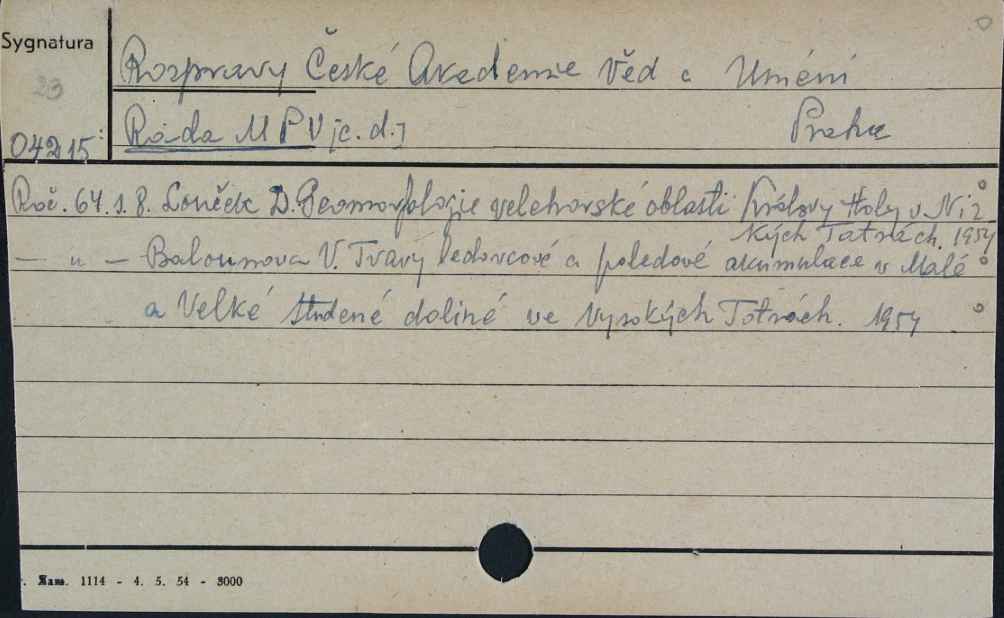 Sygnatura
23
04215:
Rozpravy České Akademie Věd a Umění
Rada MPV [c.d.]
Praha
Roč. 64. s. 8. Louček D. Geomorfologie velehorské oblasti Královy Holy v Níz
kých Tatrách. 1954
— „ — Balounova V. Tvary ledovcové a poledové akumulace v Malé
a Velké Studené dolině ve Vysokých Tatrách. 1954
Zam. 1114 - 4. 5. 54 - 3000